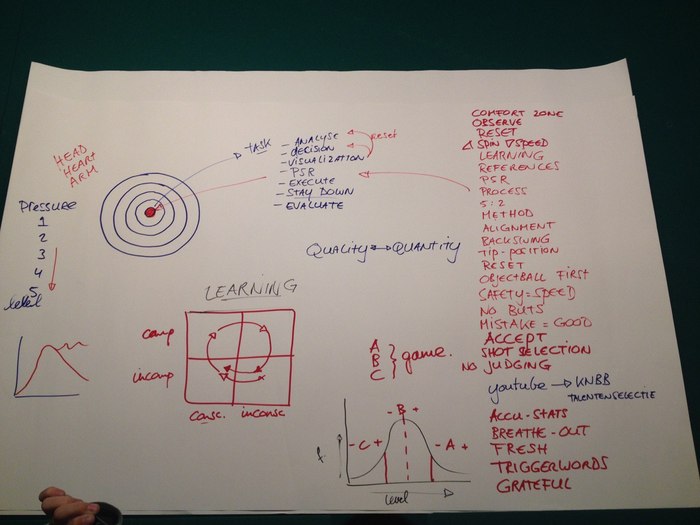 HEAD
HEART
ARM
Pressure
1
2
3
4
5
level
TASK
- ANALYSE
- decision
- VISUALIZATION
- PSR
- EXECUTE
- STAY DOWN
- EVALUATE
reset
QUALITY QUANTITY
LEARNING
comp
incomp
consc. inconsc
A
B
C
game.
- B +
- C +
- A +
f
level
COMFORT ZONE
OBSERVE
RESET
SPIN SPEED
LEARNING
REFERENCES
PSR
PROCESS
5:2
METHOD
ALIGNMENT
BACKSWING
TIP-POSITION
RESET
OBJECTBALL FIRST
SAFETY = SPEED
NO BUTS
MISTAKE = GOOD
ACCEPT
SHOT SELECTION
NO JUDGING
youtube → KNBB
TALENTENSELECTIE
ACCU-STATS
BREATHE-OUT
FRESH
TRIGGERWORDS
GRATEFUL